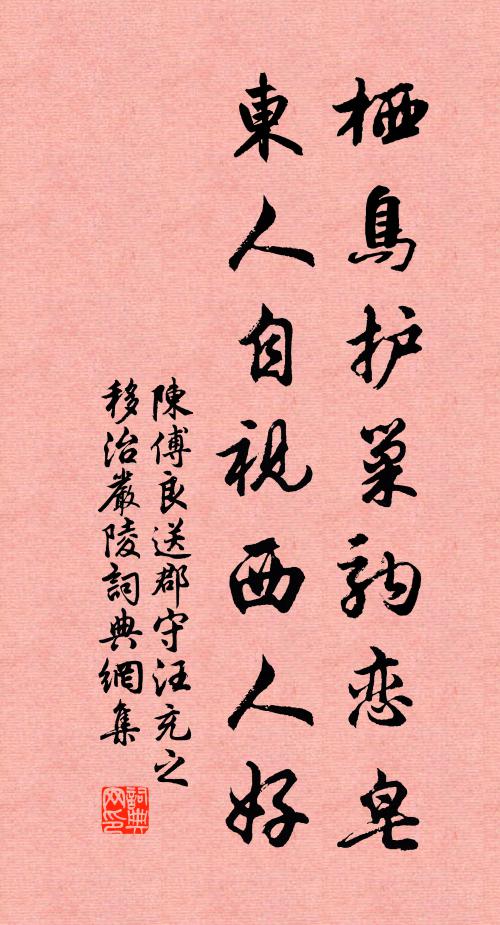 栖鳥护巢驹恋皂
東人自視西人好
陳傅良送郡守汪充之
移治嚴陵詞典網集
詞典
网印